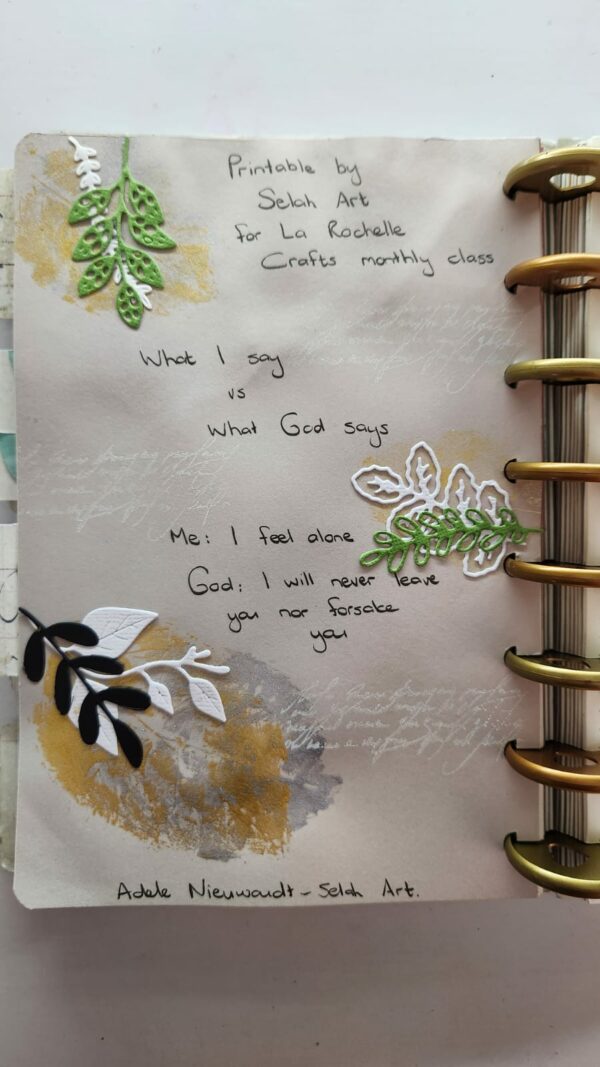 Printable by
Selah Art
for La Rochelle
Crafts monthly class
What I say
vs
What God says
Me: I feel alone
God: I will never leave
you nor forsake
you
Adele Nieuwoudt - Selah Art.